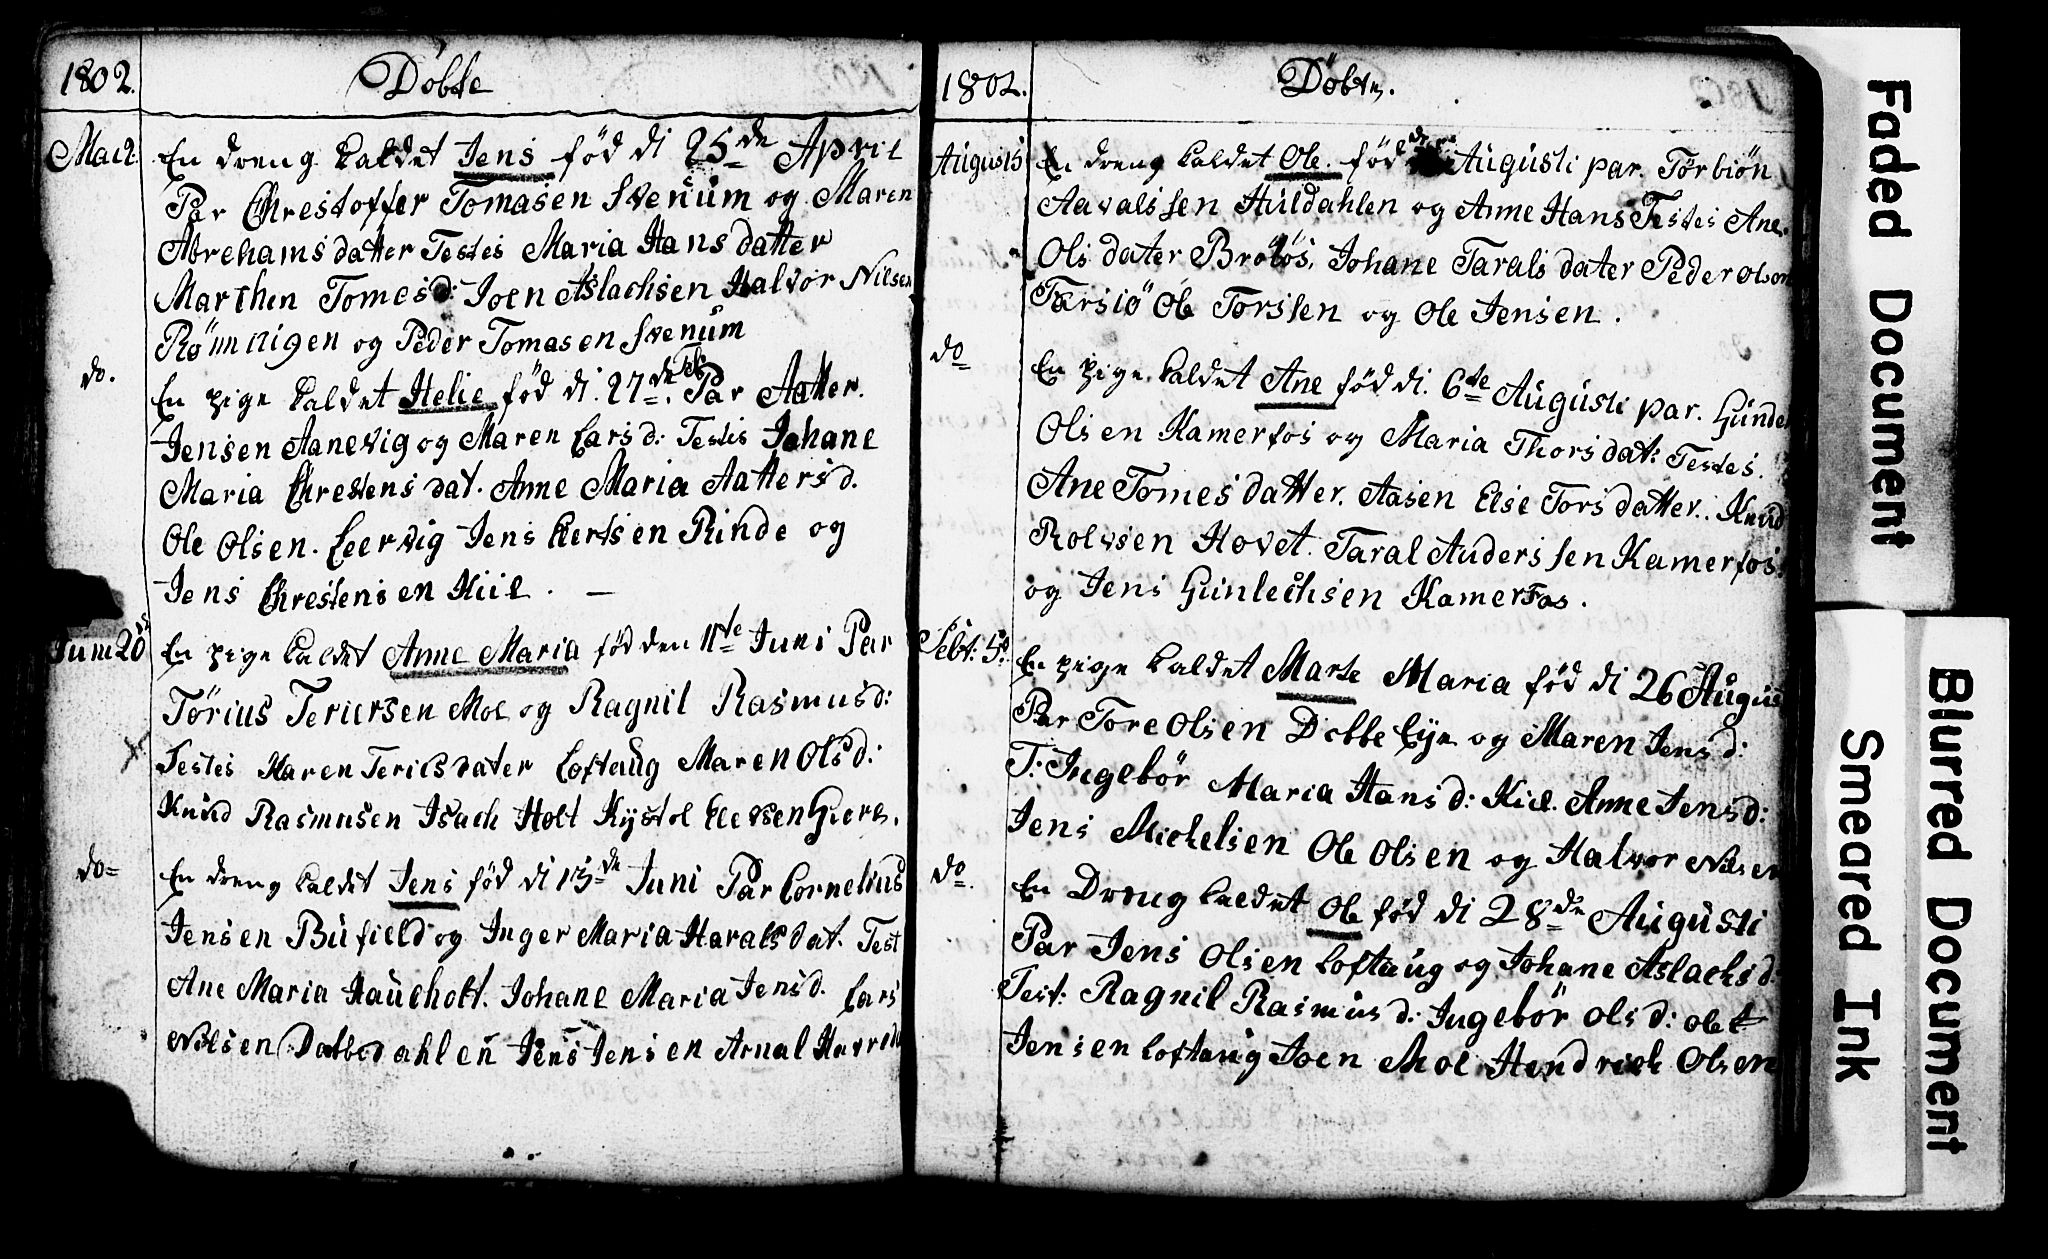 1802.
Döbte
Mai 2
En dreng kaldet Jens föd di 25de April
Par Chrestoffer Tomasen Svenum og Maren
Abrehamsdatter Testes Maria Hansdatter
Marthen Tomesd: Joen Aslachsen Halvor Nilsen
Rönningen og Peder Tomasen Svenum
do.
En pige kaldet Helie föd di 27de. Par Aatter
Jensen Aanevig og Maren Larsd: Testes Johane
Maria Chrestensdat. Anne Maria Aattersd.
Ole Olsen. Leervig Jens Lertsen Rinde og
Jens Chrestensen Kiil. —
Juni 20
En pige kaldet Anne Maria föd den 11te Juni Par
Törius Teriersen Moe og Ragnil Rasmusd:
Testes Karen Tericsdater Loftaug Maren Olsd:
Knud Rasmusen Isach Holt Kystol
do=
En dreng kaldet Jens föd di 13de Juni Par Cornelius
Jensen Bufield og Inger Maria Haralsdat. Test
Ane Maria Haucholt. Johane Maria Jensd. Lars
Nilsen Dalbodahlen Jens Jensen
1802.
Döbte.
August 5
En dreng kaldet Ole. föd Augusti par. Törbiön
Aavalssen Huldahlen og Anne Hans Testes Ane
Olsdater Brotös, Johane Taralsdater Peder Olsen
Tarsiö Ole Torssen og Ole Jensen.
do
En pige kaldet Ane föd di. 6te Augusti par. Gunder
Olsen Kamerfos og Maria Thorsdat: Testes.
Ane Tomesdatter. Aasen Else Torsdatter. Knud
Rolvsen Hovet. Taral Anderssen Kamerfos.
og Jens Gunlechsen Kamerfos.
Sebt: 5
En pige kaldet Marte Maria föd di 26 Augus
Par Tore Olsen Dobbe Eye og Maren Jensd:
T: Ingebör Maria Hansd: Kiil. Anne Jensd:
Jens Michelsen Ole Olsen og Halvor Nilsen
do.
En Dreng kaldet Ole föd di 28de Augusti
Par Jens Olsen Loftaug og Johane Aslachsd:
Test: Ragnil Rasmusd: Ingebör Olsd: Ole
Jensen Loftaug Joen Moe Hendrich Olsen
Faded Document
Smeared Ink
Blurred Document